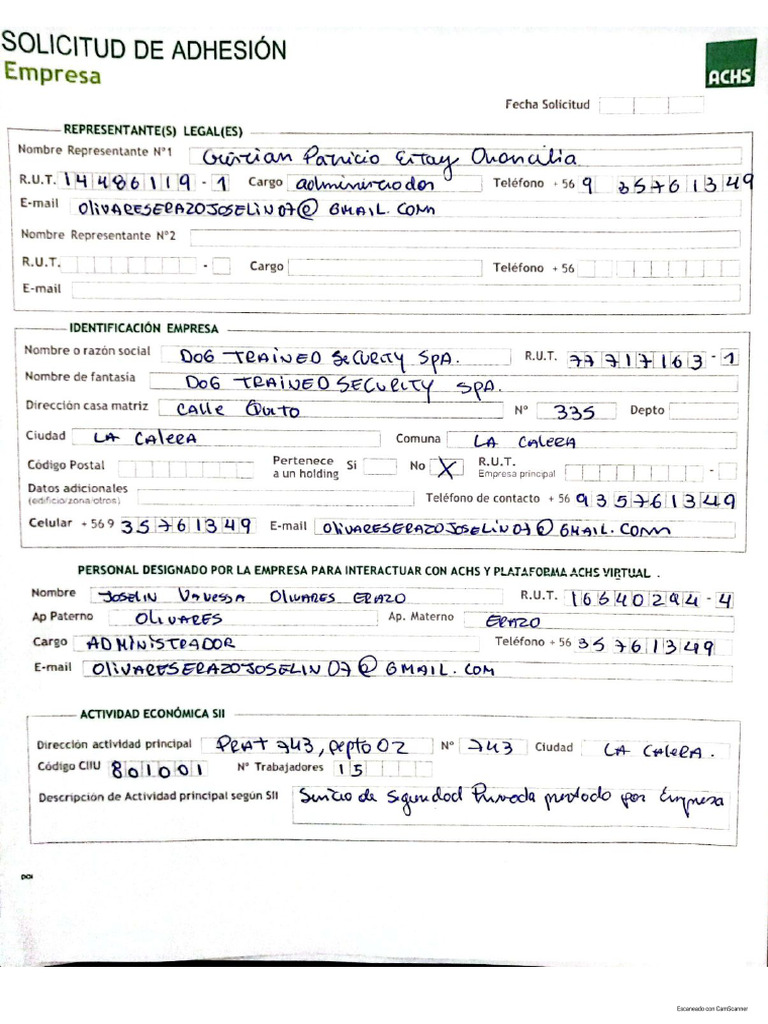 SOLICITUD DE ADHESIÓN
Empresa
ACHS
Fecha Solicitud
REPRESENTANTE(S) LEGAL(ES)
Nombre Representante N°1 Patricio
R.U.T. 14486119-1 Cargo administrador Teléfono +56 9 35761349
E-mail OLIVARESERAZOJOSELIN07@GMAIL.COM
Nombre Representante N°2
R.U.T. - Cargo Teléfono +56
E-mail
IDENTIFICACIÓN EMPRESA
Nombre o razón social DOG TRAINED SECURITY SPA. R.U.T. 77717163-1
Nombre de fantasia DOG TRAINED SECURITY SPA.
Dirección casa matriz CALLE QUITO N° 335 Depto
Ciudad LA CALERA Comuna LA CALERA
Código Postal Pertenece a un holding Si No X R.U.T. Empresa principal -
Datos adicionales (edificio/zona/otros) Teléfono de contacto +56 935761349
Celular +56 9 35761349 E-mail OLIVARESERAZOJOSELIN07@GMAIL.COM
PERSONAL DESIGNADO POR LA EMPRESA PARA INTERACTUAR CON ACHS Y PLATAFORMA ACHS VIRTUAL.
Nombre JOSELIN VANESSA OLIVARES ERAZO R.U.T. 16640294-4
Ap Paterno OLIVARES Ap. Materno ERAZO
Cargo ADMINISTRADOR Teléfono +56 35761349
E-mail OLIVARESERAZOJOSELIN07@GMAIL.COM
ACTIVIDAD ECONÓMICA SII
Dirección actividad principal PRAT 743, Depto 02 N° 743 Ciudad LA CALERA.
Código CIIU 801001 N° Trabajadores 15
Descripción de Actividad principal según SII Servicio de Seguridad Privada prestado por Empresa
Escaneado con CamScanner